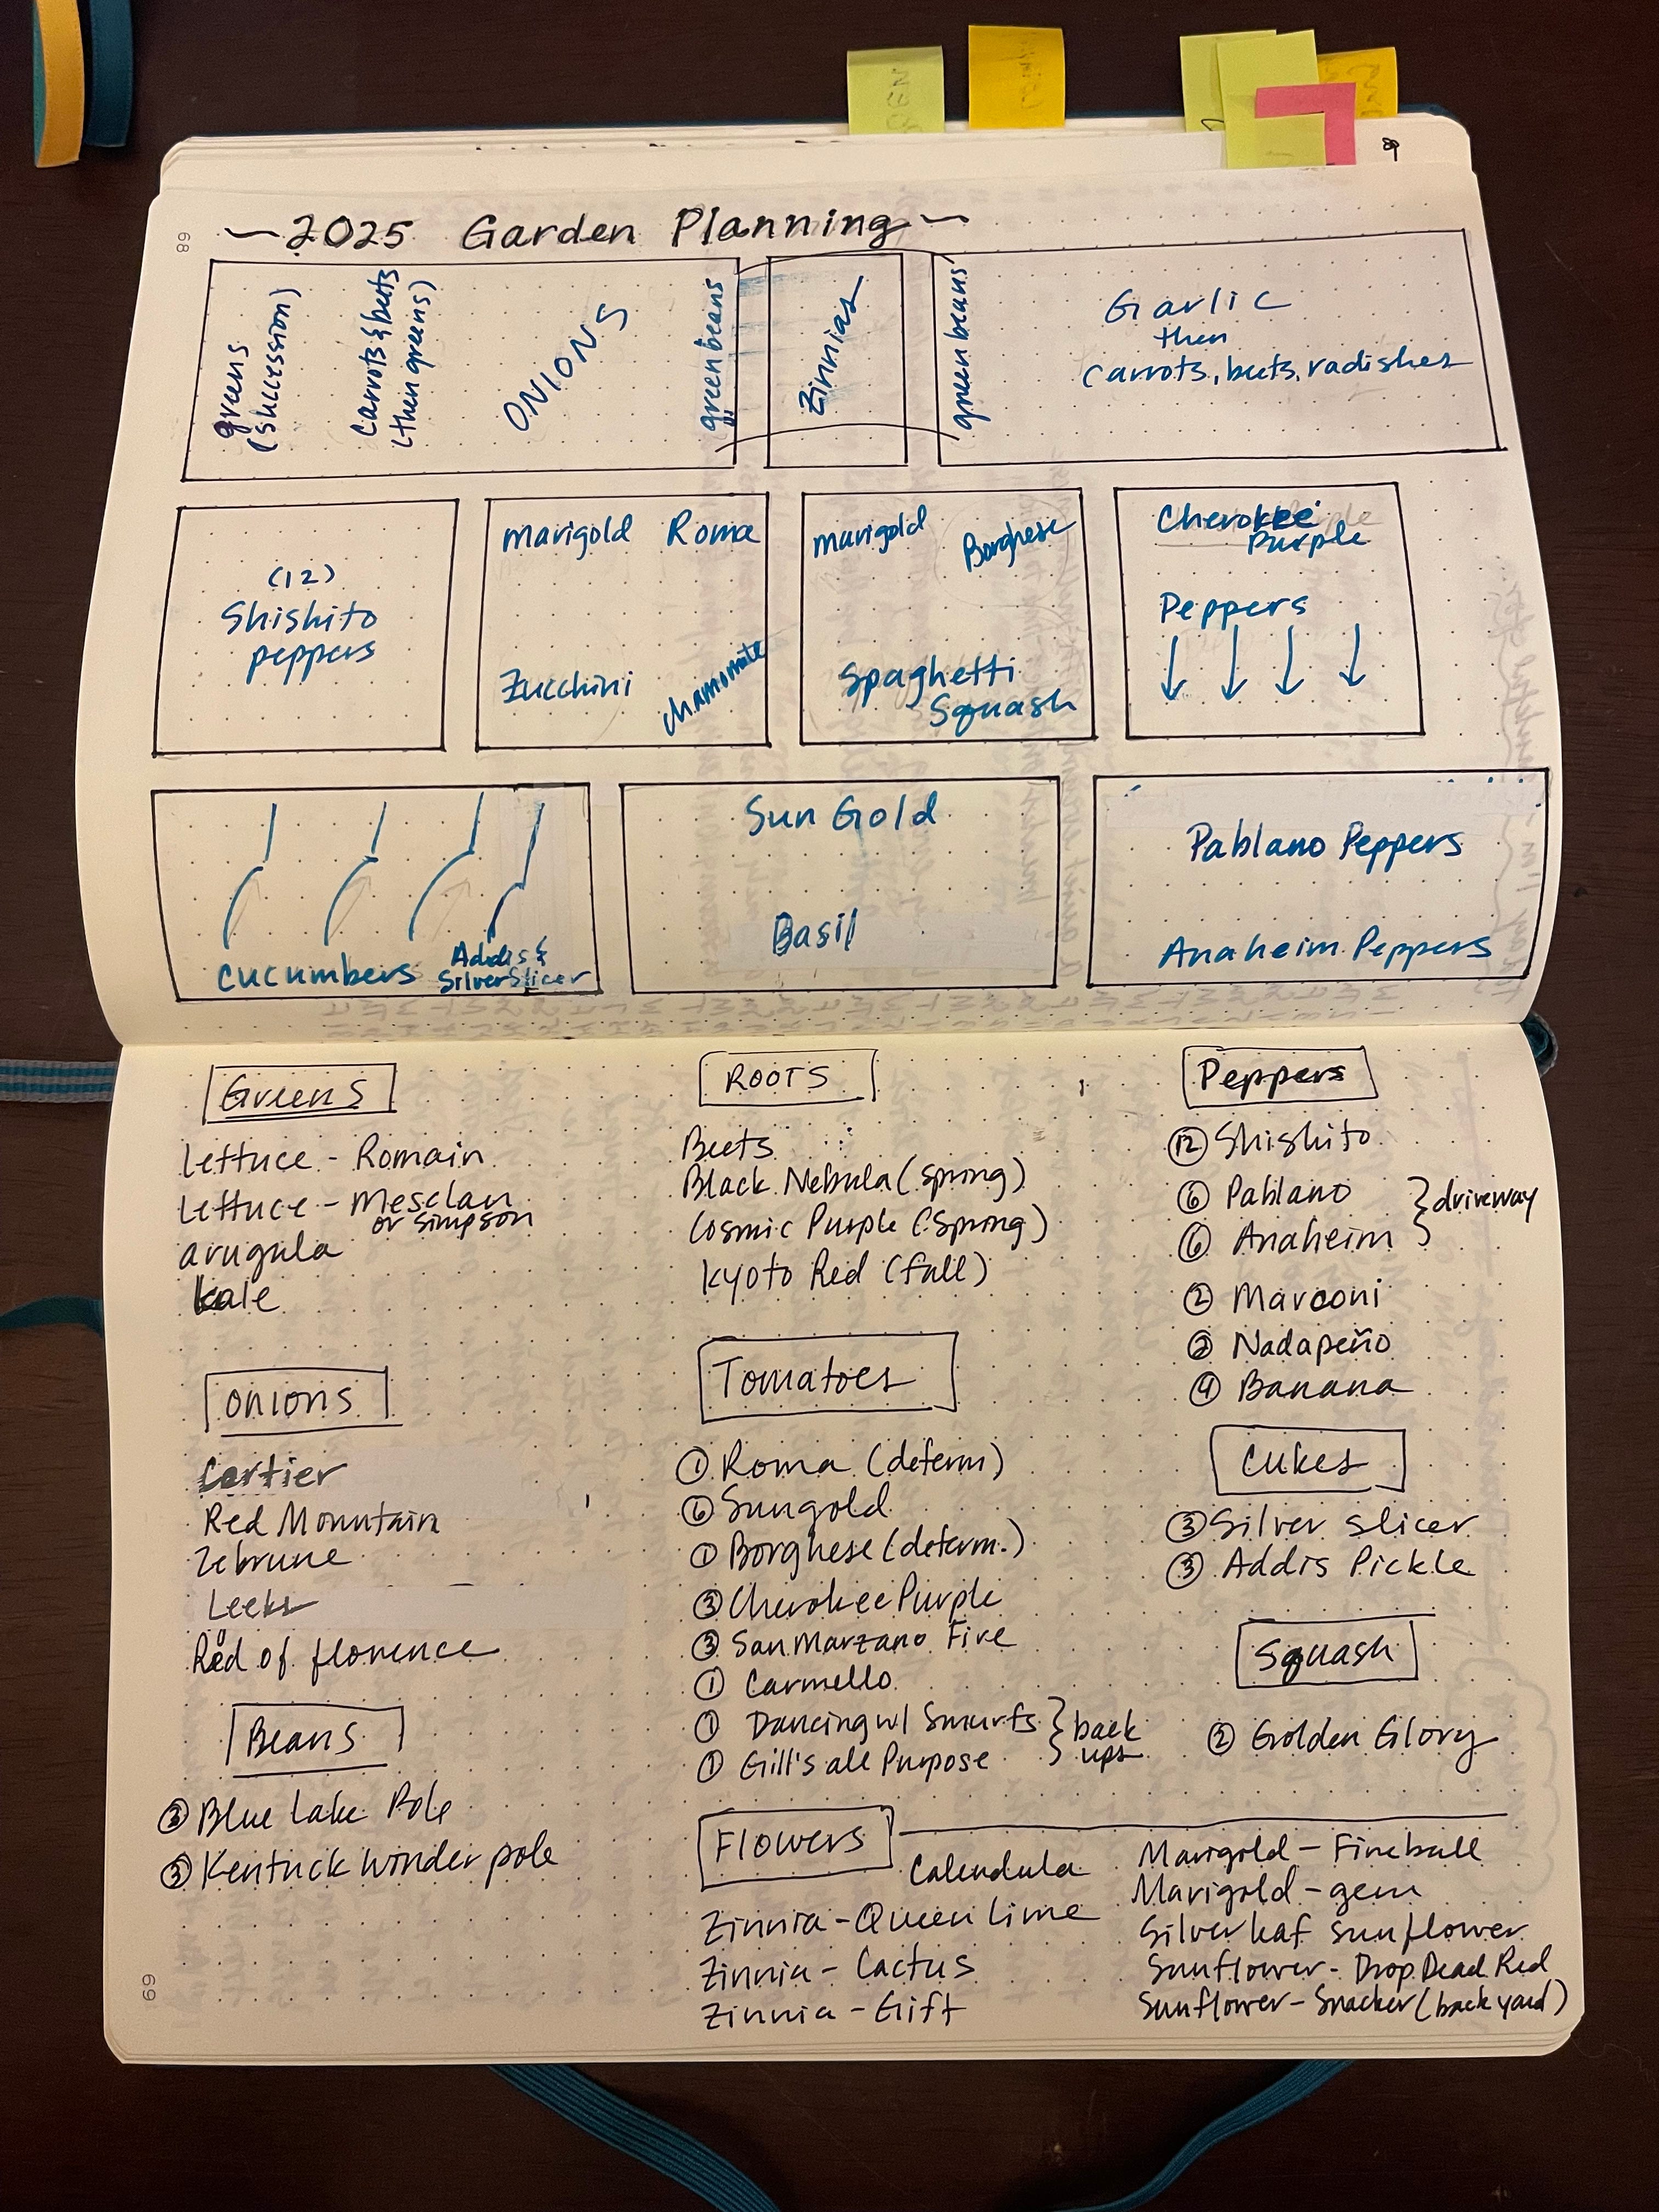 68
89
~2025 Garden Planning~
greens
(succession)
Carrots & beets
(then greens)
ONIONS
green beans
Zinnias
green beans
Garlic
then
carrots, beets, radishes
(12)
Shishito
peppers
marigold Roma
Zucchini chamomile
marigold Borghese
Spaghetti
Squash
Cherokee
Purple
Peppers
cucumbers Addis &
Silver Slicer
Sun Gold
Basil
Pablano Peppers
Anaheim Peppers
Greens
Lettuce - Romain
Lettuce - Mesclan
or simpson
arugula
kale
Onions
Cartier
Red Mountain
Zebrune
Leeks
Red of florence
Beans
③ Blue Lake Pole
③ Kentuck winder pole
ROOTS
Beets
Black Nebula (spring)
Cosmic Purple (spring)
Kyoto Red (fall)
Tomatoes
① Roma (determ)
⑥ Sungold
① Borghese (determ.)
③ Cherokee Purple
③ San Marzano Fire
① Carmello
① Dancing w/ Smurfs
① Gill's all Purpose
back
ups
Peppers
⑫ Shishito
⑥ Pablano
⑥ Anaheim
driveway
② Marconi
② Nadapeño
④ Banana
Cukes
③ Silver slicer
③ Addis Pickle
Squash
② Golden Glory
Flowers
Calendula
Zinnia - Queen Lime
Zinnia - Cactus
Zinnia - Gift
Marigold - Fireball
Marigold - gem
Silver leaf sunflower
Sunflower - Drop Dead Red
Sunflower - Snacker (back yard)
69